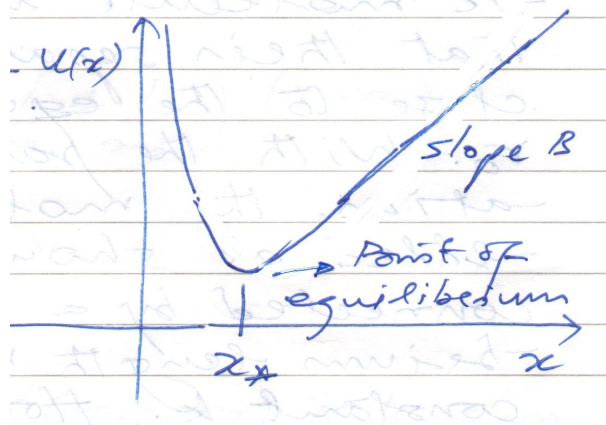 U(x)
slope B
Point of
equilibrium
x*
x